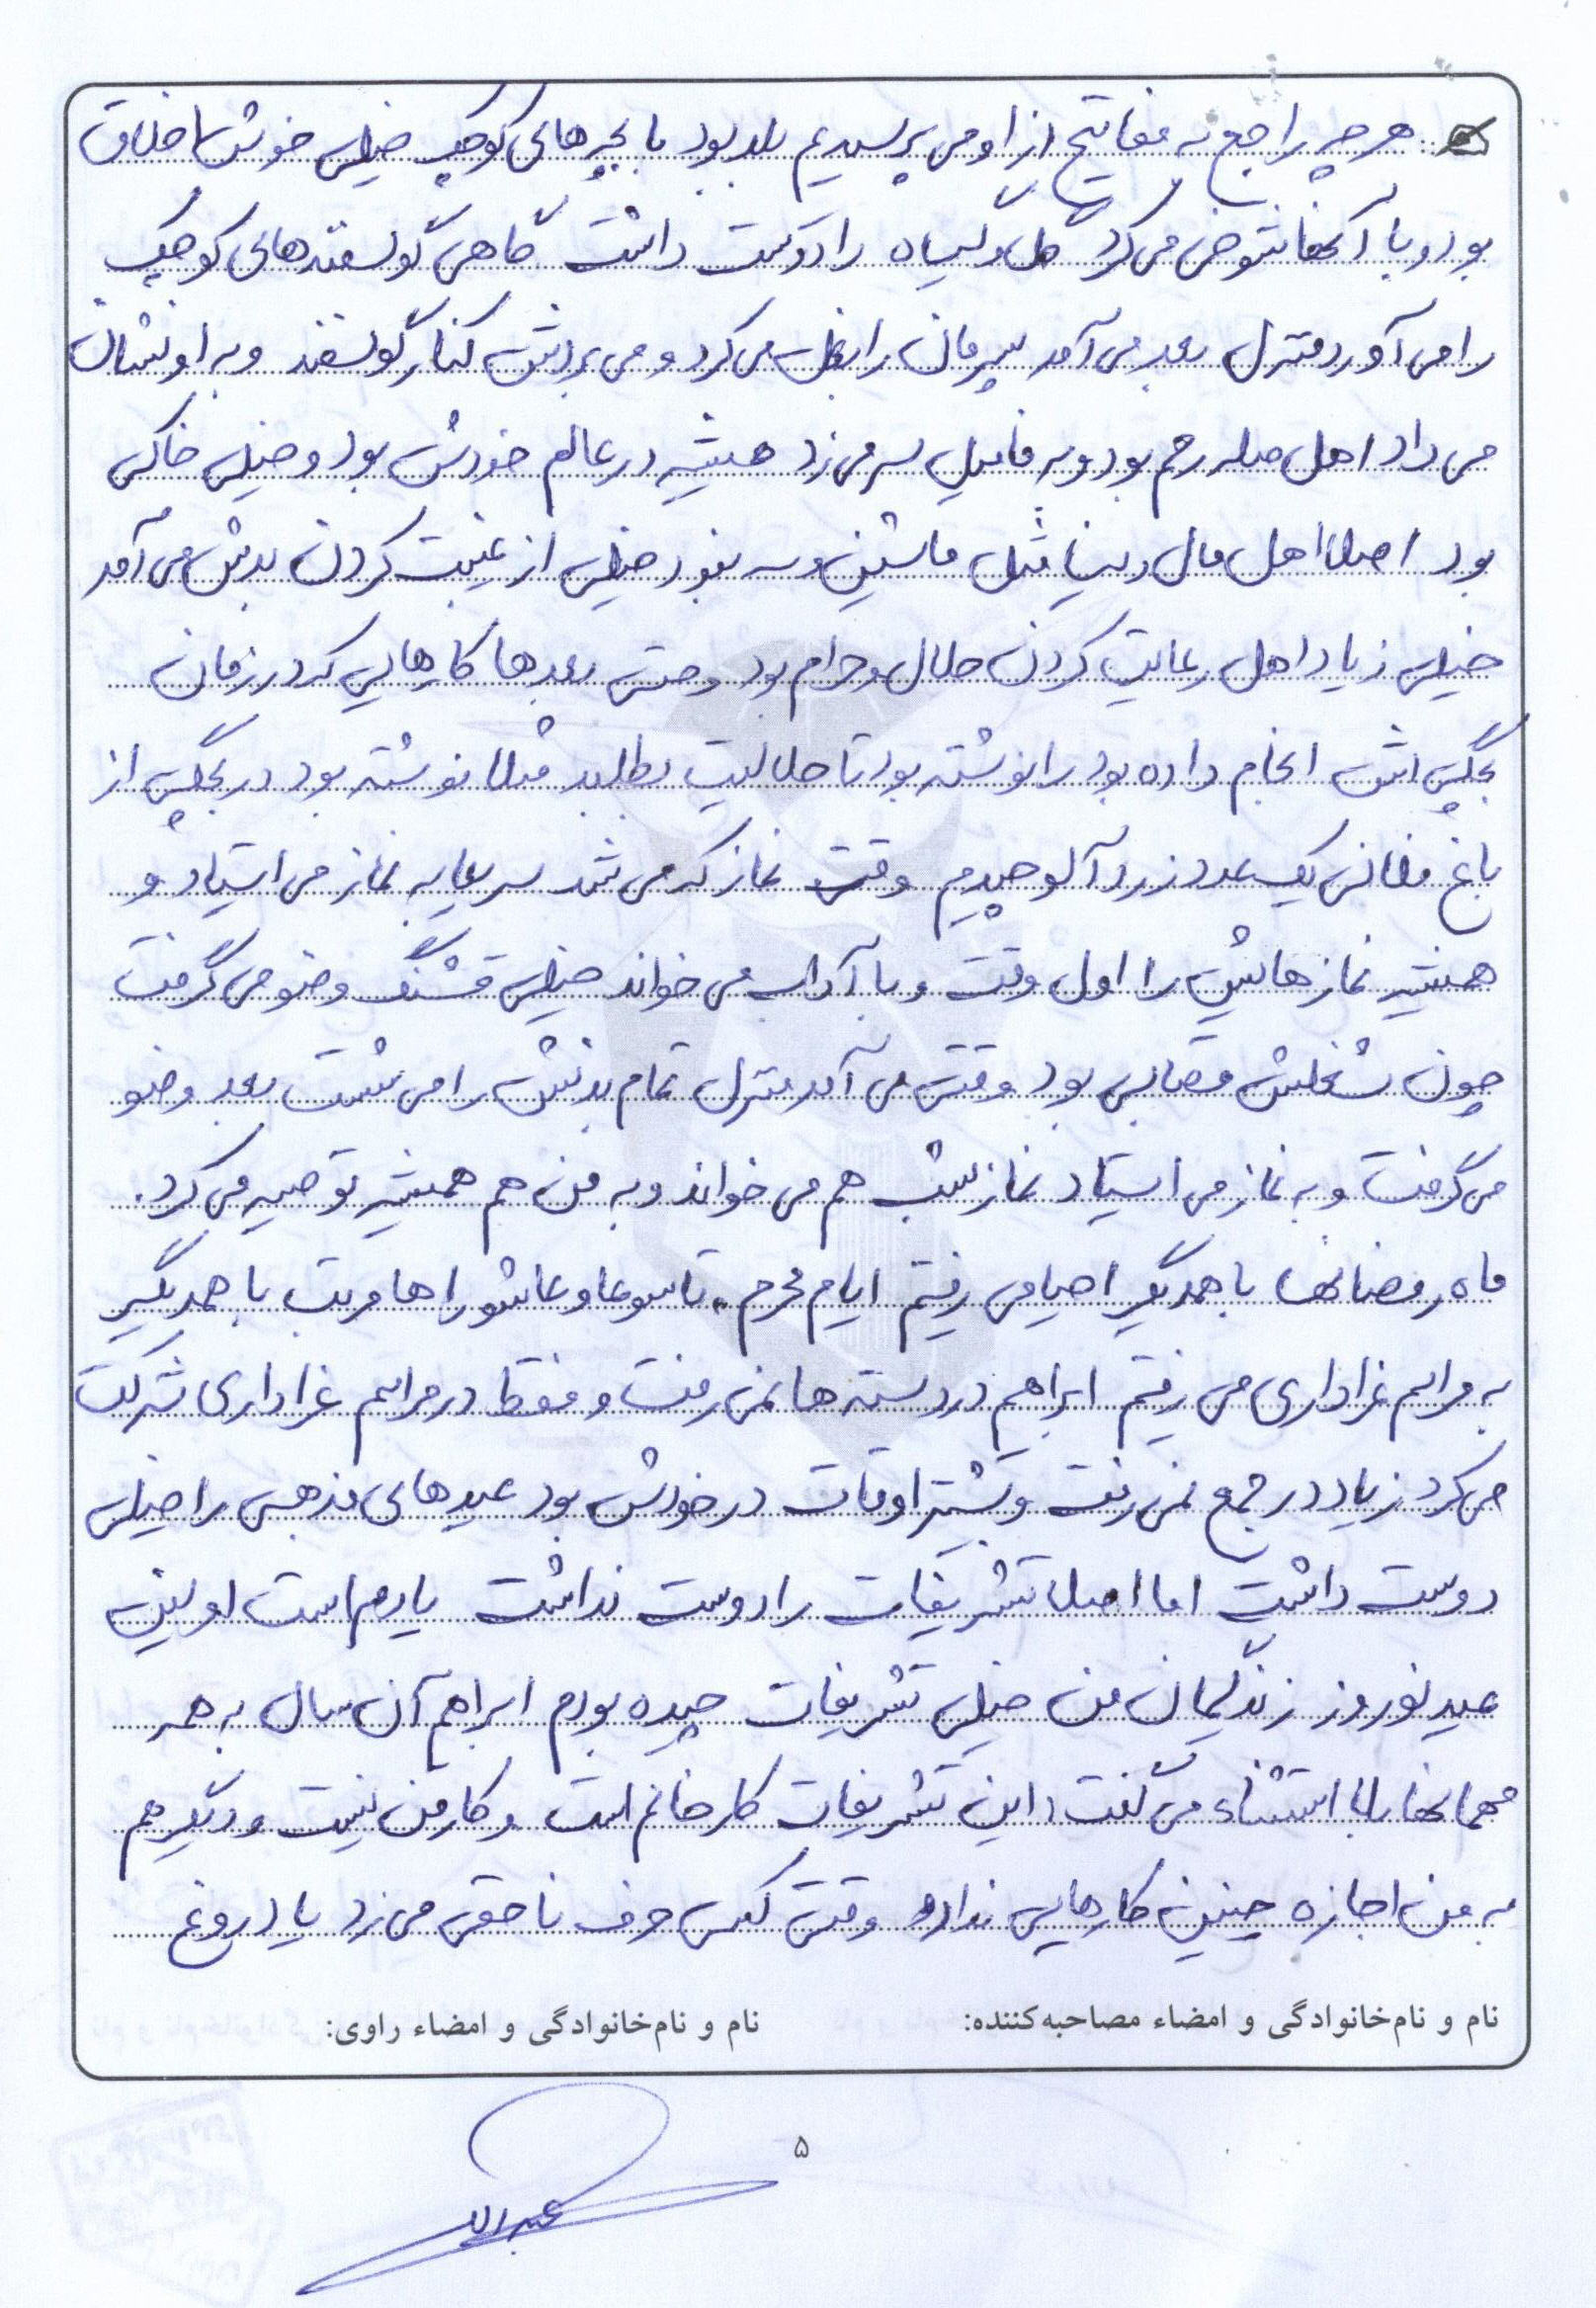 هر چه راجع به مفاتیح از او می پرسیدیم بلد بود با بچه های کوچک خیلی خوش اخلاق
بود و با آنها شوخی می کرد گل و گیاه را دوست داشت گاهی گوسفندهای کوچک
را می آورد منزل بعد می آمد پسرمان را بغل می کرد و می بردش کنار گوسفند و به او نشان
می داد اهل صله رحم بود و به فامیل سر می زد همیشه در عالم خودش بود و خیلی خاکی
بود اصلا اهل مال دنیا مثل ماشین و ... نبود خیلی از غیبت کردن بدش می آمد
خیلی زیاد اهل رعایت کردن حلال و حرام بود و حتی بعدها کارهایی که در زمان
بچگی اش انجام داده بود را نوشته بود تا حلالیت بطلبد مثلا نوشته بود در بچگی از
باغ فلانی یک عدد زردآلو چیدم وقت نماز که می شد سریعا به نماز می ایستاد و
همیشه نمازهایش را اول وقت و با آداب می خواند خیلی قشنگ وضو می گرفت
چون شغلش قصابی بود وقتی می آمد منزل تمام بدنش را می شست بعد وضو
می گرفت و به نماز می ایستاد نماز شب هم می خواند و به من هم همیشه توصیه می کرد.
ماه رمضانها با همدیگر احیا می رفتیم ایام محرم، تاسوعا و عاشورا ها مرتب با همدیگر
به مراسم عزاداری می رفتیم ابراهیم در دسته ها نمی رفت و فقط در مراسم عزاداری شرکت
می کرد زیاد در جمع نمی رفت و بیشتر اوقات در خودش بود عیدهای مذهبی را خیلی
دوست داشت اما اصلا تشریفات را دوست نداشت یادم است اولین
عید نوروز زندگیمان من خیلی تشریفات چیده بودم ابراهیم آن سال به همه
مهمانها بلا استثناء می گفت: این تشریفات کار خانم است و کار من نیست و دیگر هم
به من اجازه چنین کارهایی نداد وقتی کسی حرف ناحقی می زد یا دروغ
نام و نام‌خانوادگی و امضاء مصاحبه‌کننده: نام و نام‌خانوادگی و امضاء راوی:
۵